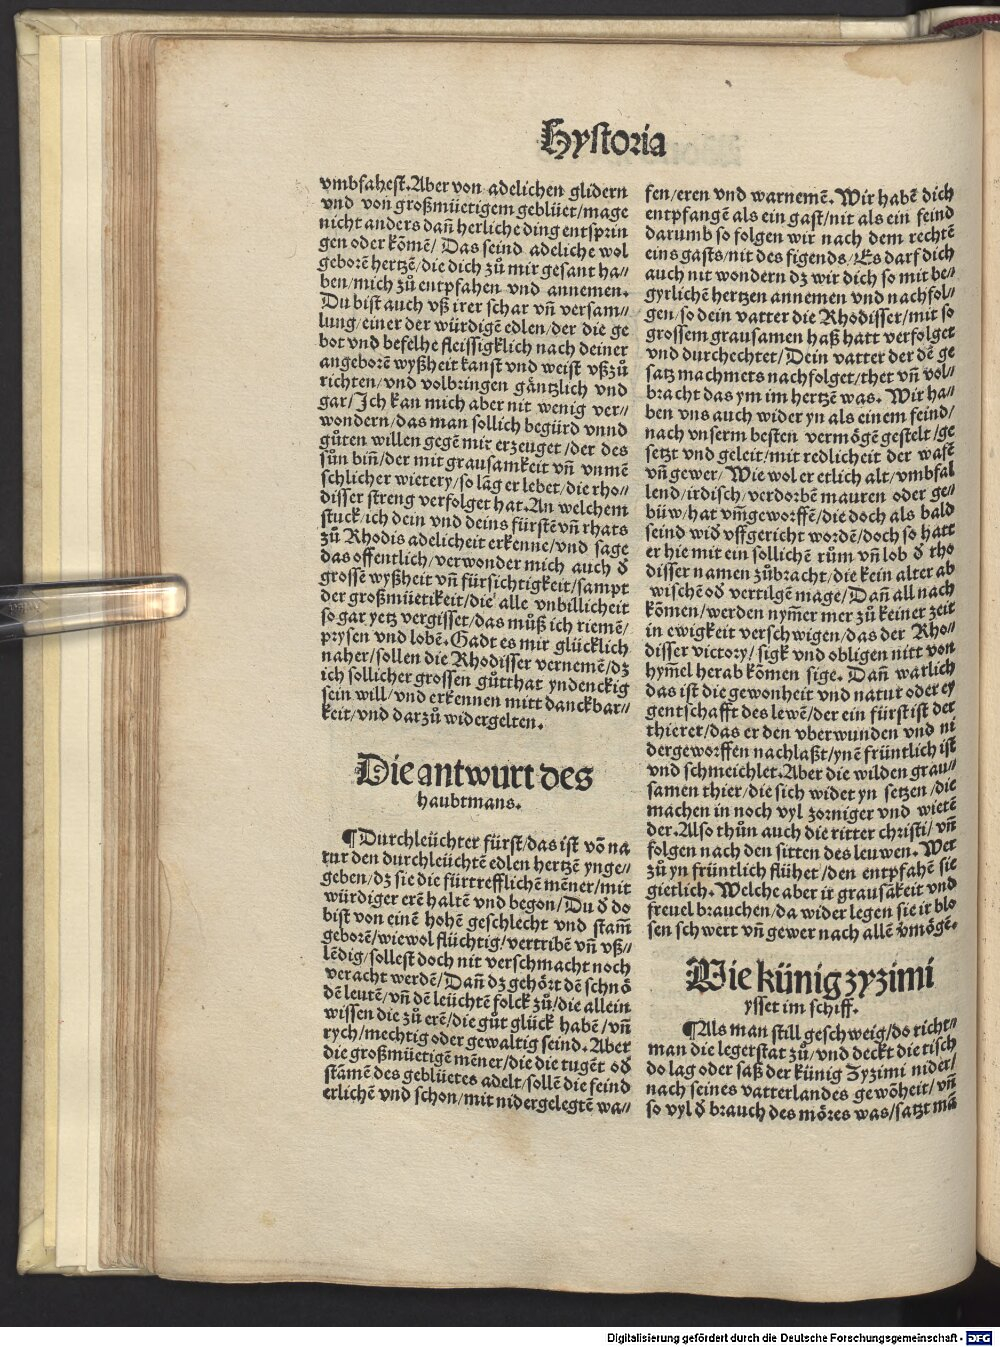 Hystoria
vmbfahest. Aber von adelichen glidern
vnd von großmüetigem geblüet/mage
nicht anders dañ herliche ding entsprin
gen oder kõmẽ/ Das seind adeliche wol
geborẽ hertzẽ/die dich zů mir gesant ha//
ben/mich zů entpfahen vnd annemen.
Du bist auch vß irer schar vñ versam//
lung/einer der würdigẽ edlen/der die ge
bot vnd befelhe fleissigklich nach deiner
angeborẽ wyßheit kanst vnd weist vßzů
richten/vnd volbringen gäntzlich vnd
gar/Ich kan mich aber nit wenig ver//
wondern/das man sollich begürd vnnd
gůten willen gegẽ mir erzeuget/der des
sůn biñ/der mit grausamkeit vñ vnmẽ
schlicher wietery/so lãg er lebet/die rho//
disser streng verfolget hat. An welchem
stuck/ich dein vnd deins fürstẽ vñ rhats
zů Rhodis adelicheit erkenne/vnd sage
das offentlich/verwonder mich auch ď
grossẽ wyßheit vñ fürsichtigkeit/sampt
der großmüetikeit/die alle vnbillicheit
so gar yetz vergisset/das můß ich riemẽ/
prysen vnd lobẽ. Gadt es mir glücklich
naher/sollen die Rhodisser vernemẽ/dz
ich sollicher grossen gůtthat yndenckig
sein will/vnd erkennen mitt danckbar//
keit/vnd darzů widergelten.
Die antwurt des
haubtmans.
¶Durchleüchter fürst/das ist võ na
tur den durchleüchtẽ edlen hertzẽ ynge//
geben/dz sie die fürtrefflichẽ mẽner/mit
würdiger erẽ haltẽ vnd begon/Du ď do
bist von einẽ hohẽ geschlecht vnd stam̃
geborẽ/wiewol flüchtig/vertribẽ vñ vß//
lẽdig/sollest doch nit verschmacht noch
veracht werdẽ/Dañ dz gehört dẽ schnö
dẽ leutẽ/vñ dẽ leüchtẽ folck zů/die allein
wissen die zů erẽ/die gůt glück habẽ/vñ
rych/mechtig oder gewaltig seind. Aber
die großmüetigẽ mẽner/die die tugẽt oď
stãmẽ des geblüetes adelt/sollẽ die feind
erlichẽ vnd schon/mit nidergelegtẽ wa//
fen/eren vnd warnemẽ. Wir habẽ dich
entpfangẽ als ein gast/nit als ein feind
darumb so folgen wir nach dem rechtẽ
eins gasts/nit des figends/Es darf dich
auch nit wondern dz wir dich so mit be//
gyrlichẽ hertzen annemen vnd nachfol//
gen/so dein vatter die Rhodisser/mit so
grossem grausamen haß hatt verfolget
vnd durchechtet/Dein vatter der dẽ ge
satz machmets nachfolget/thet vñ vol//
bracht das ym im hertzẽ was. Wir ha//
ben vns auch wider yn als einem feind/
nach vnserm besten vermögẽ gestelt/ge
setzt vnd geleit/mit redlicheit der waſẽ
vñ gewer/Wie wol er etlich alt/vmbfal
lend/irdisch/verdorbẽ mauren oder ge//
büw/hat vm̃geworffẽ/die doch als bald
seind wiď vffgericht wordẽ/doch so hatt
er hie mit ein sollichẽ rům vñ lob ď rho
disser namen zůbracht/die kein alter ab
wischẽ oď vertilgẽ mage/Dañ all nach
kõmen/werden nym̃er mer zů keiner zeit
in ewigkeit verschwigen/das der Rho//
disser victory/sigk vnd obligen nitt von
hym̃el herab kõmen sige. Dañ warlich
das ist die gewonheit vnd natur oder ey
gentschafft des lewẽ/der ein fürst ist der
thierer/das er den vberwunden vnd ni
dergeworffen nachlaßt/ynẽ früntlich ist
vnd schmeichlet. Aber die wilden grau//
samen thier/die sich widet yn setzen/die
machen in noch vyl zorniger vnd wietẽ
der. Also thůn auch die ritter christi/vñ
folgen nach den sitten des leuwen. Wer
zů yn früntlich flühet/den entpfahẽ sie
gietlich. Welche aber ir grausãkeit vnd
freuel brauchen/da wider legen sie ir blo
sen schwert vñ gewer nach allẽ v̈mögẽ.
Wie künig zyzimi
ysset im schiff.
¶Als man still geschweig/do richt//
man die legerstat zů/vnd deckt die tisch
do lag oder saß der künig Zyzimi nider/
nach seines vatterlandes gewõheit/vñ
so vyl ď brauch des möres was/satzt mã
Digitalisierung gefördert durch die Deutsche Forschungsgemeinschaft - DFG